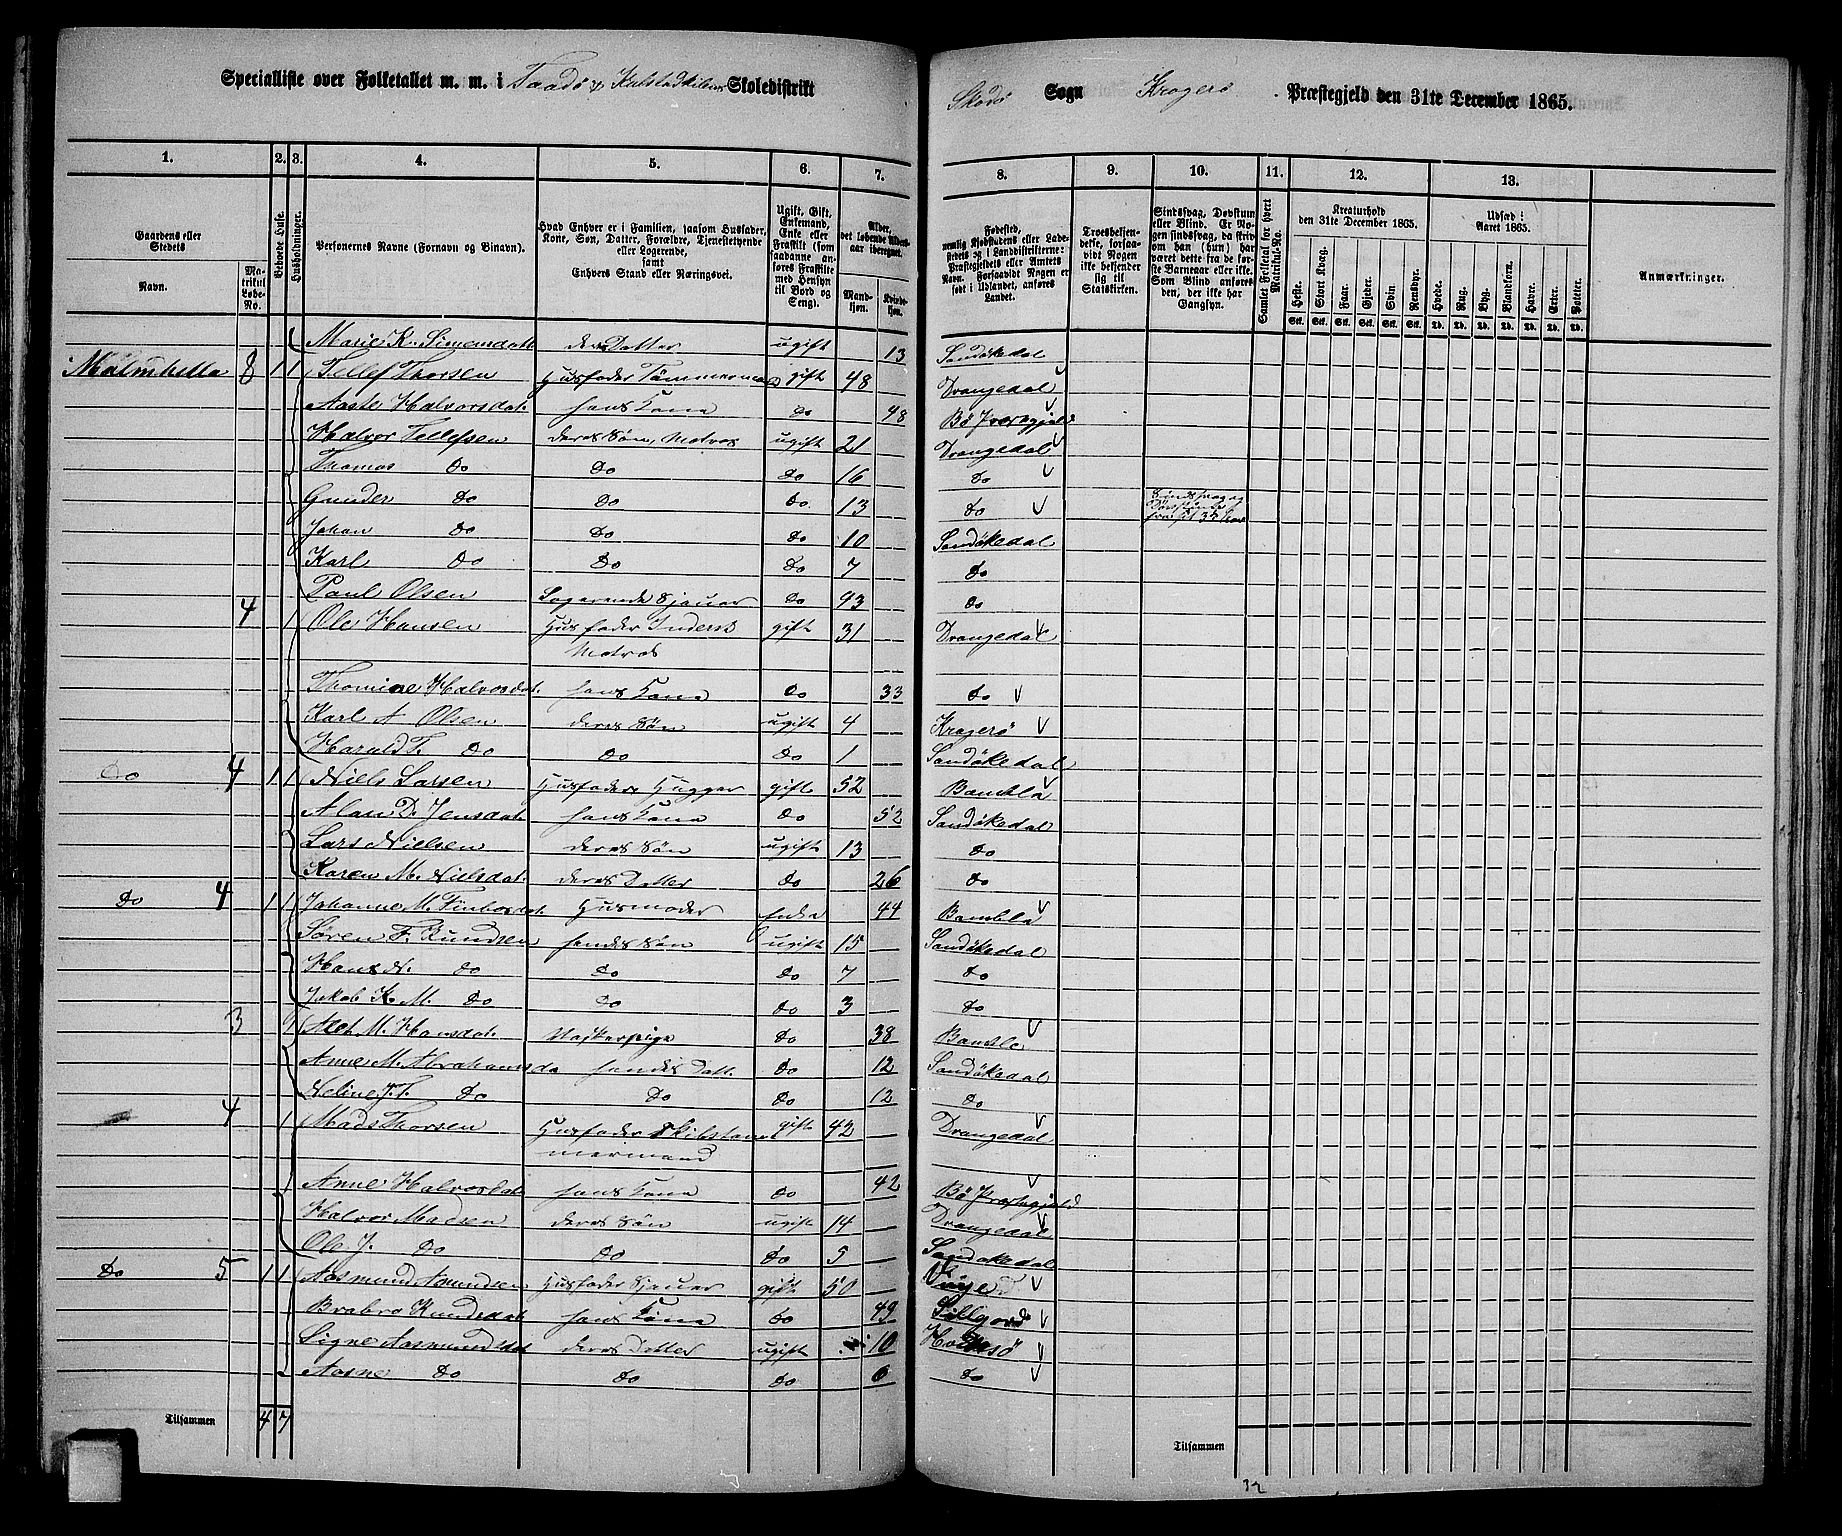 Specialliste over Folketallet m. m. i Taadø & Kalstadkilens Skoledistrikt
Skadø Sogn Kragerø Præstegjeld den 31te December 1865.
1. 2. 3. 4. 5. 6. 7.
Gaardens eller Stedets
Navn.
Matrikul Løbe-No.
Beboede Huse.
Husholdninger.
Personernes Navne (Fornavn og Binavn).
Hvad Enhver er i Familien, saasom Husfader, Kone, Søn, Datter, Forældre, Tjenestetyende eller Logerende, samt Enhvers Stand eller Næringsvei.
Ugift, Gift, Enkemand, Enke eller Fraskilt (som saadanne anføres Fraskilte med Hensyn til Bord og Seng).
Alder, det løbende Alders-aar iberegnet.
Mandkjøn. Kvindekjøn.
8. 9. 10. 11. 12. 13.
Fødested, nemlig Kjøbstadens eller Ladestedets og i Landdistrikterne: Præstegjeldets eller Amtets Navn. Forsaavidt Nogen er født i Udlandet, anføres Landet.
Troesbekjendelse, forsaavidt Nogen ikke bekjender sig til Statskirken.
Sindssvag, Døvstum eller Blind. Er Nogen sindssvag, da skriv om han (hun) har været dette fra de første Barneaar eller ikke. Som Blind anføres den, der ikke har Gangsyn.
Samlet Folketal for hvert Matrikul-No.
Kreaturhold den 31te December 1865.
Heste. Stort Kvæg. Faar. Gjeder. Svin. Rensdyr.
Stk. Stk. Stk. Stk. Stk. Stk.
Udsæd i Aaret 1865.
Hvede. Rug. Byg. Blandkorn. Havre. Erter. Poteter.
Td. Td. Td. Td. Td. Td. Td.
Anmærkninger.
Marie K. Simensdatt deres Datter ugift 13 Sandøkedal
Malmhella 8 1 1 Tellef Thorsen Husfader Tømmermand gift 48 Drangedal
Aaste Halvorsdat. hans Kone do 48 Bø Præstegjeld
Halvor Tellefsen deres Søn, Matros ugift 21 Drangedal
Thomas do do do 16 do
Gunder do do do 13 do
Johan do do do 10 Sandøkedal
Karl do do do 7 do
Paul Olsen Logerende Sjauer do 43 do
4 1 Ole Hansen Husfader Inderst gift 31 Drangedal
Matros
Thomine Halvorsdat. hans Kone do 33 do
Karl A. Olsen deres Søn ugift 4 Kragerø
Harald T. do do do 1 Sandøkedal
do 4 1 1 Niels Larsen Husfader Hugger gift 52 Bamble
D. Jensdat. hans Kone do 52 Sandøkedal
Lars Nielsen deres Søn ugift 13 do
Karen M. Nielsdat. deres Datter do 26 do
do 4 1 1 Johanne M. Husmoder enke 44 Bamble
Søren F. Knudsen hendes Søn ugift 15 Sandøkedal
Hans N. do do do 7 do
Jakob K. M. do do do 3 do
3 1 M. Hansdat. do 38 Bamble
Anne M. Abrahamsda hendes Datt. do 12 Sandøkedal
Neline J. T. do do do 12 do
4 1 Mads Thorsen Husfader Skibstøm gift 42 Drangedal
mermand
Anne Halvorsdat hans Kone do 42 Bø Præstegjeld
Halvor Madsen deres Søn ugift 14 Drangedal
Ole J. do do do 5 Sandøkedal
do 5 1 1 Aasmund Amundsen Husfader Sjauer gift 50 Vinje
Knudsdat hans Kone do 49
Signe Aasmundsdat deres Datter ugift 10
Aasne do do do 6 do
Tilsammen 4 7
Tilsammen
32